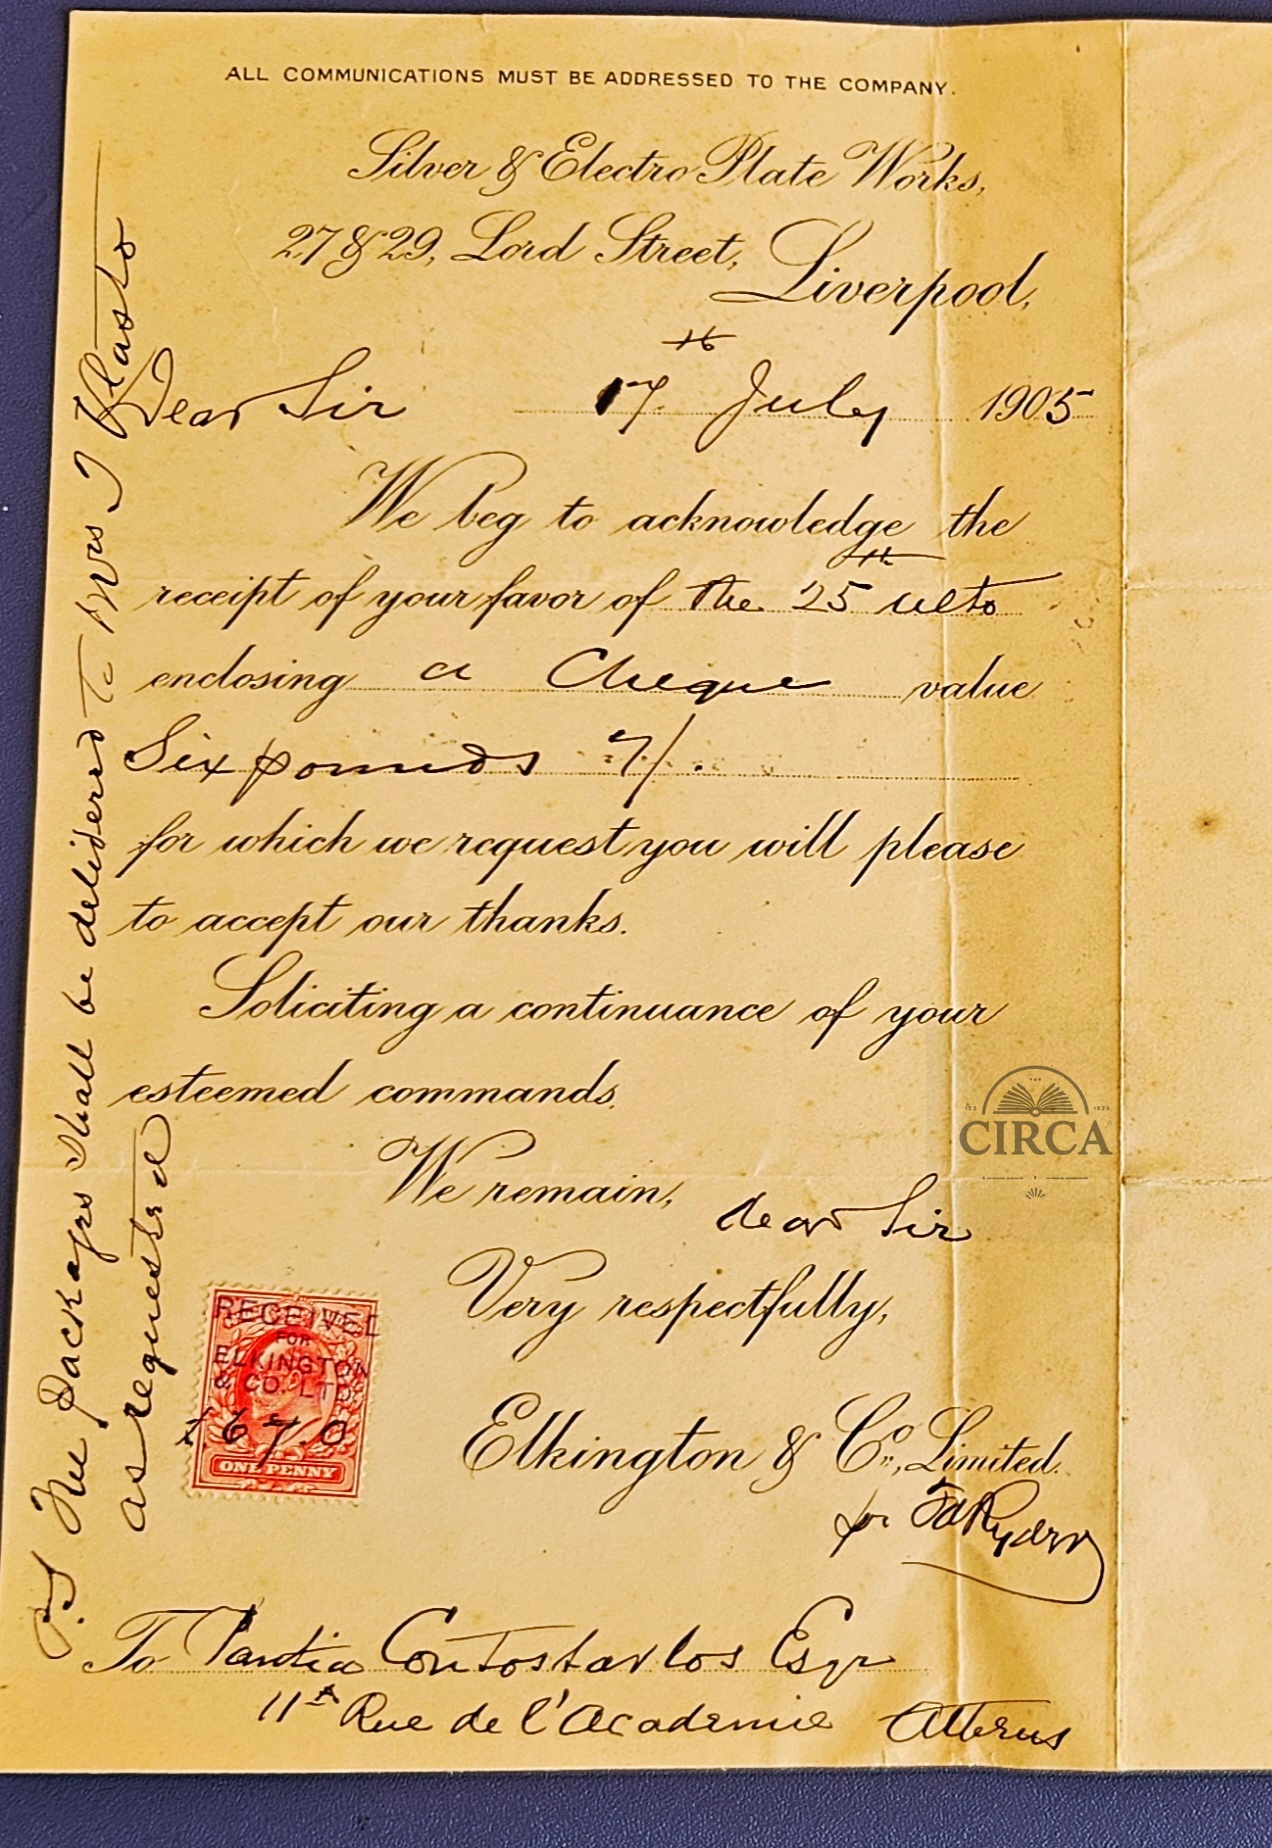 ALL COMMUNICATIONS MUST BE ADDRESSED TO THE COMPANY.
Silver & Electro Plate Works,
27 & 29, Lord Street, Liverpool,
Dear Sir 17th July 1905
We beg to acknowledge the
receipt of your favor of the 25th ulto
enclosing a Cheque value
Six pounds 7/.
for which we request you will please
to accept our thanks.
Soliciting a continuance of your
esteemed commands.
We remain, dear Sir
Very respectfully,
Elkington & Co., Limited.
for Ryder
To Pantia Contostavlos Esqr
11A Rue de l'Academie Athens
P.S The packages shall be delivered to Mrs J Vlasto
as requested
RECEIVED
FOR
ELKINGTON
& CO. LTD.
£6.7.0
ONE PENNY
CIRCA